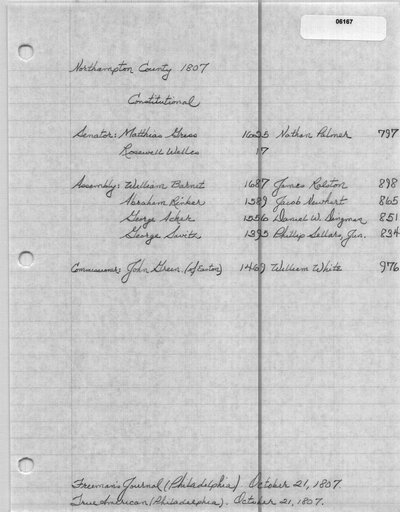 06167
Northampton County 1807
Constitutional
Senator: Matthias Gress 1625 Nathan Palmer 797
Rosewell Welles 17
Assembly: William Barnet 1687 James Ralston 898
Abraham Rinker 1589 Jacob Newhart 865
George Acker 1556 Daniel W. Dingman 851
George Savitz 1395 Phillip Sellars, Jun. 834
Commissioner: John Green (of Easton) 1469 William White 976
Freeman's Journal (Philadelphia). October 21, 1807.
True American (Philadelphia). October 21, 1807.